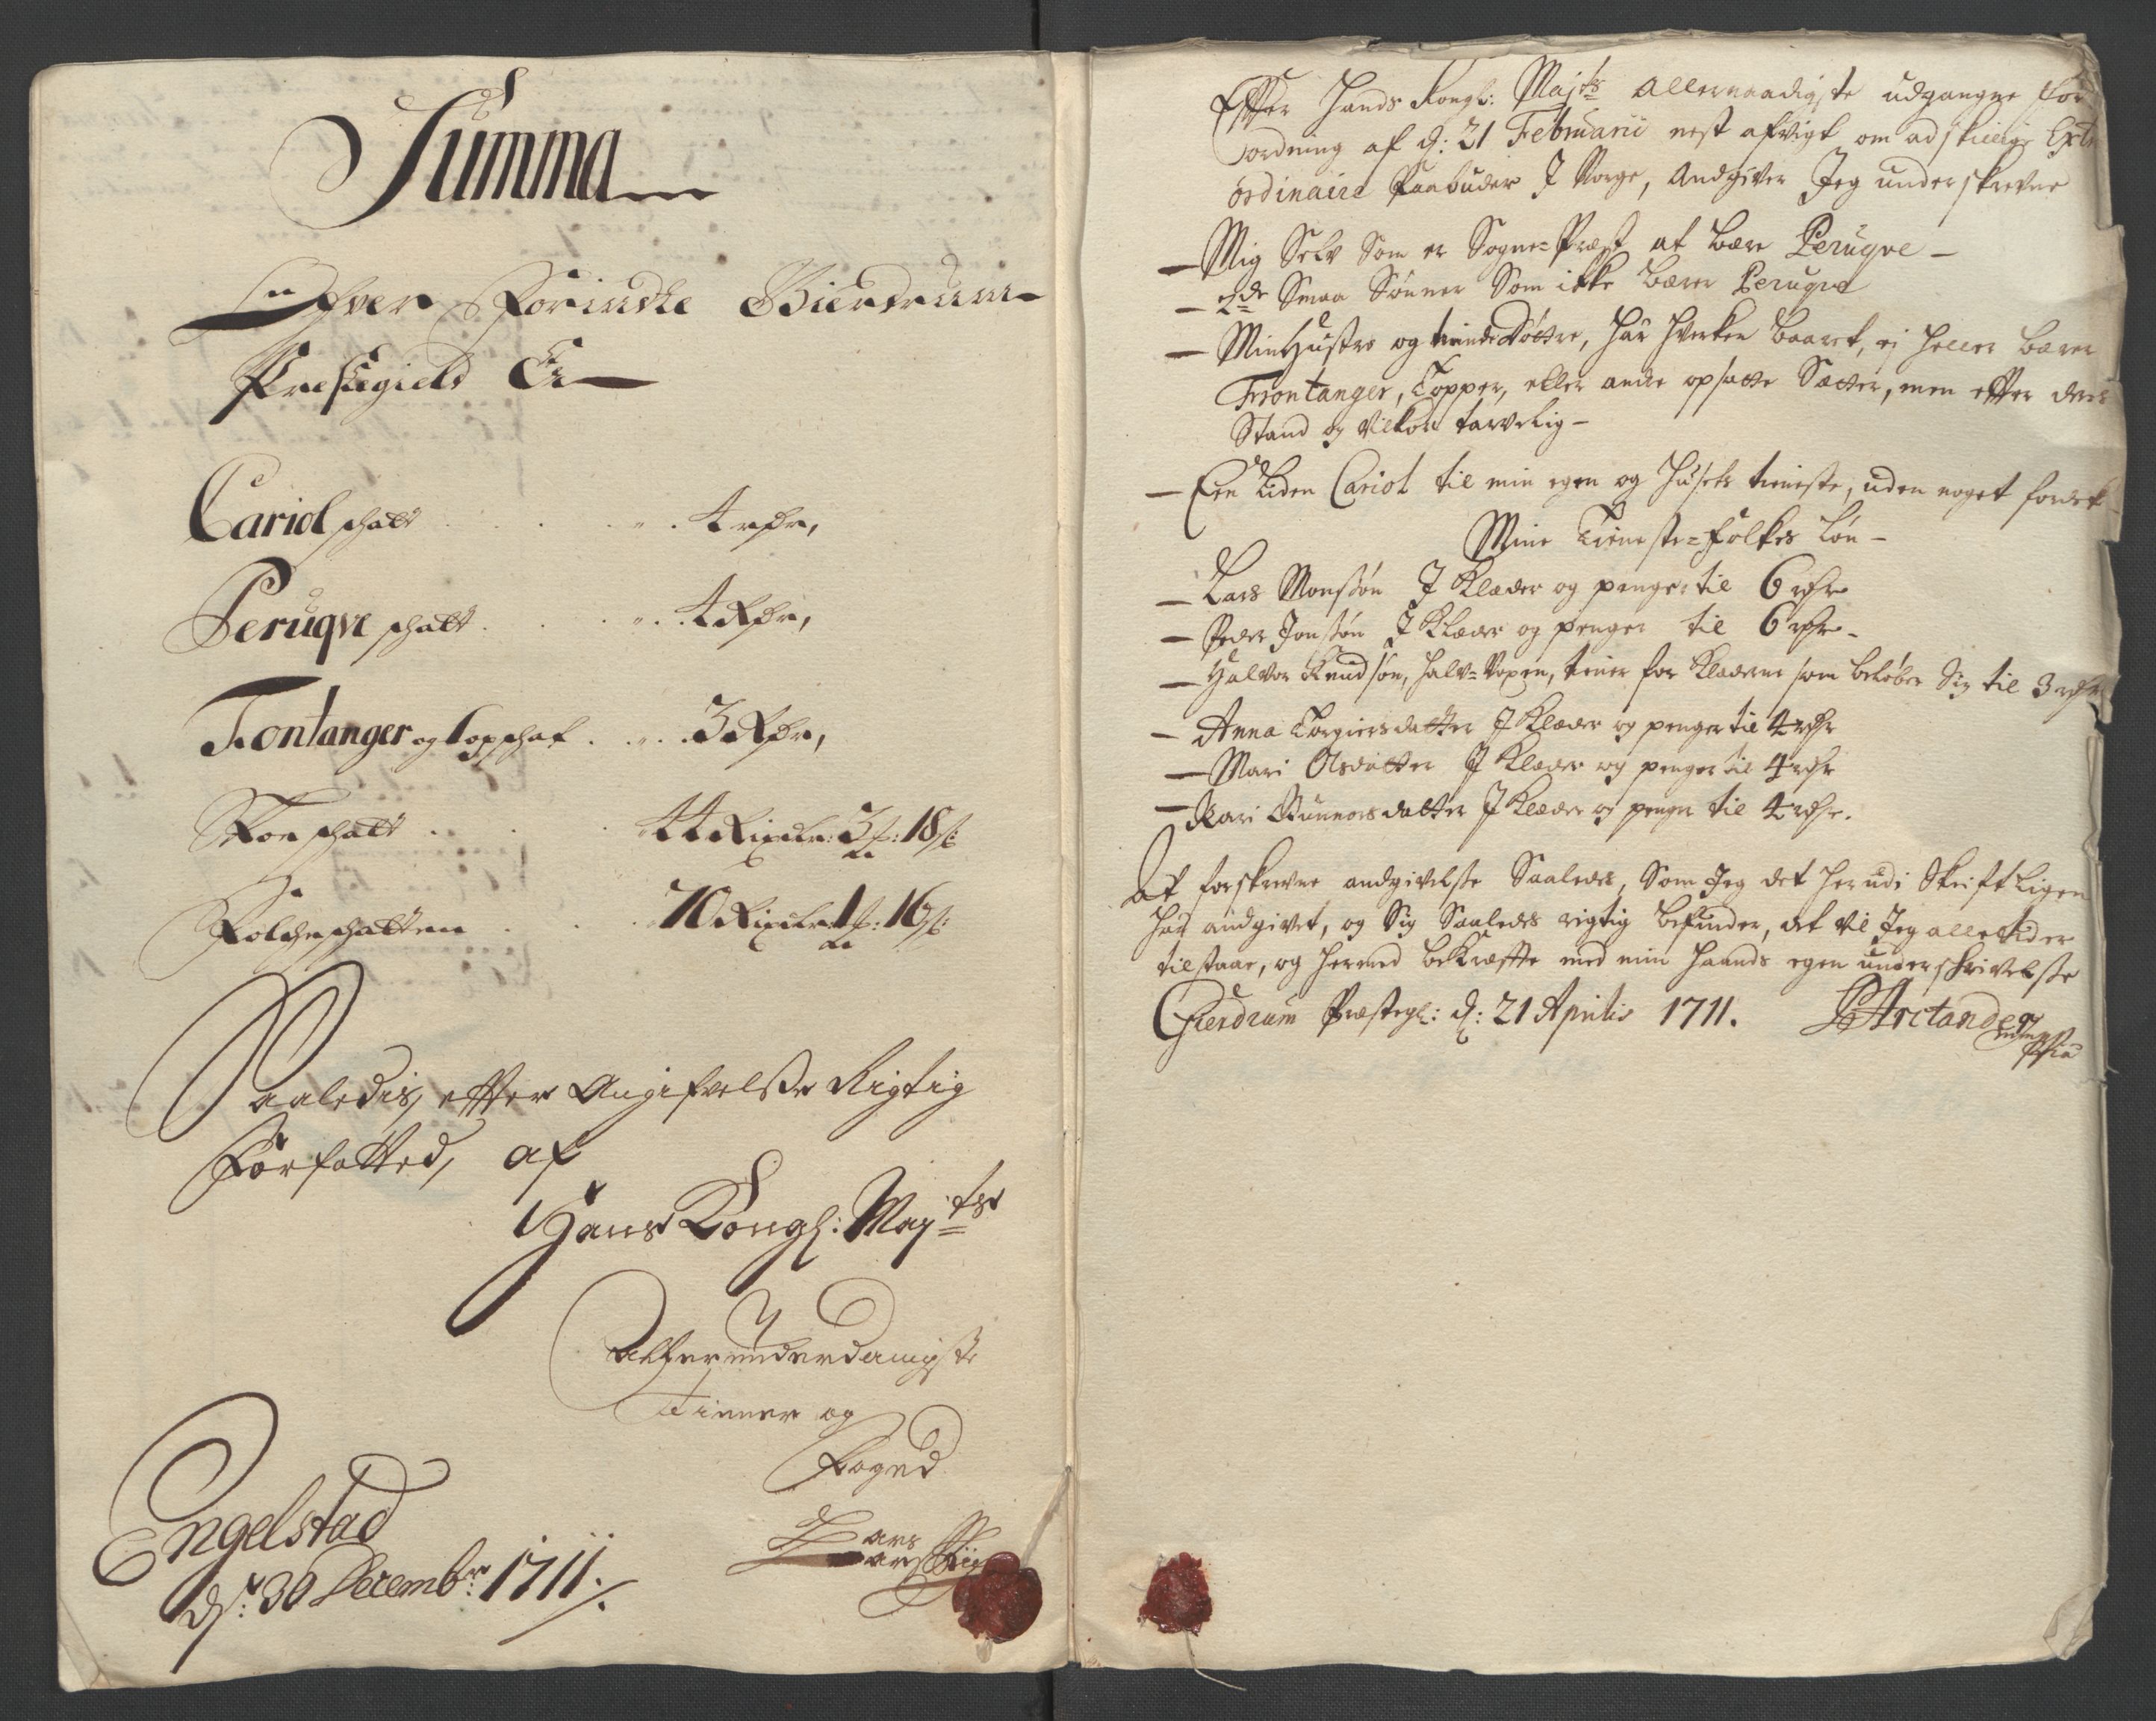 Summa
Ofver Forindte Gierdrum
Prestegield Er
Cariol schatt . . . . 4 rdr,
Peruqve schatt . . . . 4 Rdr,
Fontanger og Topschat . . . . 3 Rdr,
Skoe schatt . . . 44 Rixdlr: 3 ƒ: 18 ß:
Folcheschatten . . . 70 Rixdlr: 1 ƒ: 16 ß:
Saaledis, effter Angifvelsse Rigtig
Forfatted, af
Hans Kongl: Maytz
Allerunderdanigste
Tienner og
Foged
Lars
Engelstad
ds: 30 Decembr: 1711 ./.
Effter Hands Kongl: Majts Allernaadigste udgangne For
ordning af d: 21 Februarii nest afvigt om adskillige Extr
ordinaire Paabuder J Norge, Andgiver Jeg underskrevne
— Mig Selv Som er Sogne=Præst at bære Peruqve —
— 2de Smaa Sønner Som ikke bærer Peruqve
— Min Hustro og tvende Døttre, har hverken baaret, ej heller bærer
Frontanger, Topper, eller andre opsatte Sætter, men effter deris
Stand og Vilkor tarvelig —
— Een Liden Cariol til min egen og Husets tieniste, uden noget fordek
Mine Tieneste=Folkes Løn —
— Lars Monssøn J Klæder og penger til 6 rdr
— Peder Jonssøn J Klæder og penger til 6 rdr —
— Halvor Knudsøn, halv=Voxen, tiener for Klæderne som beløber Sig til 3 rdr
— Anna Torgiersdatter J Klæder og penger til 4 rdr
— Mari Olsdatter J Klæder og penger til 4 rdr
— Kari Gunnorsdatter J Klæder og penger til 4 rdr.
At forskrevne andgivelsse Saaledes, Som Jeg det herudi Skriftligen
har andgivet, og Sig Saaledes rigtig befinder, det vil Jeg alle tider
tilstaae, og hermed bekræffte med min Haands egen underskrivelsse
Gierdrum Præstegl: d: 21 Aprilis 1711. Arctander